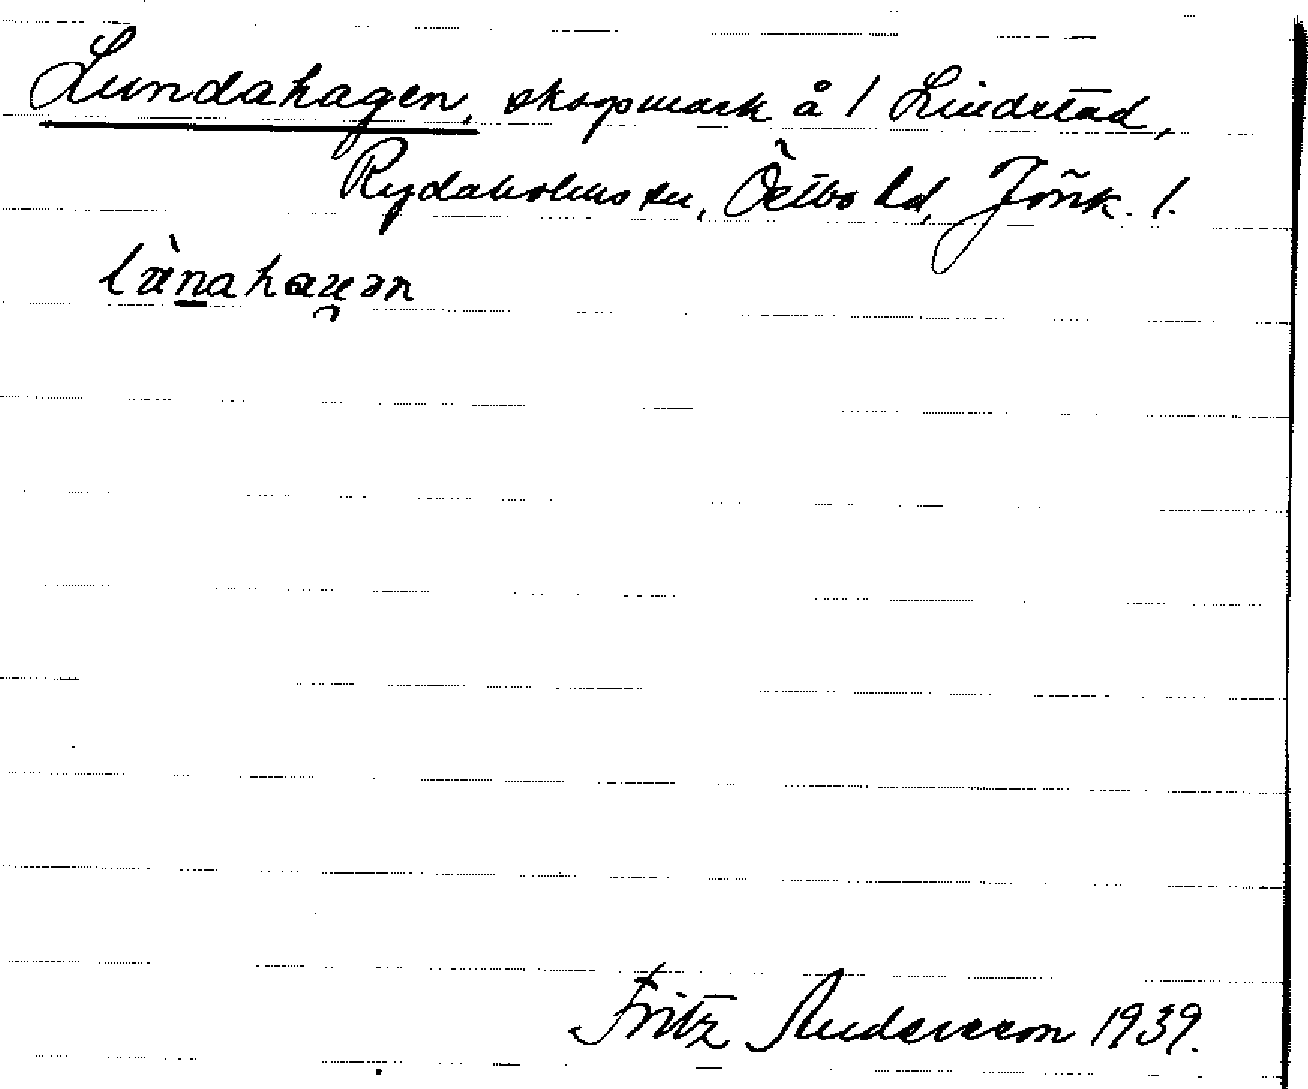 Lundahagen, skogsmark å 1 Lindstad,
Rydaholms sn, Östbo hd, Jönk. l.
Fritz Andersson 1939.